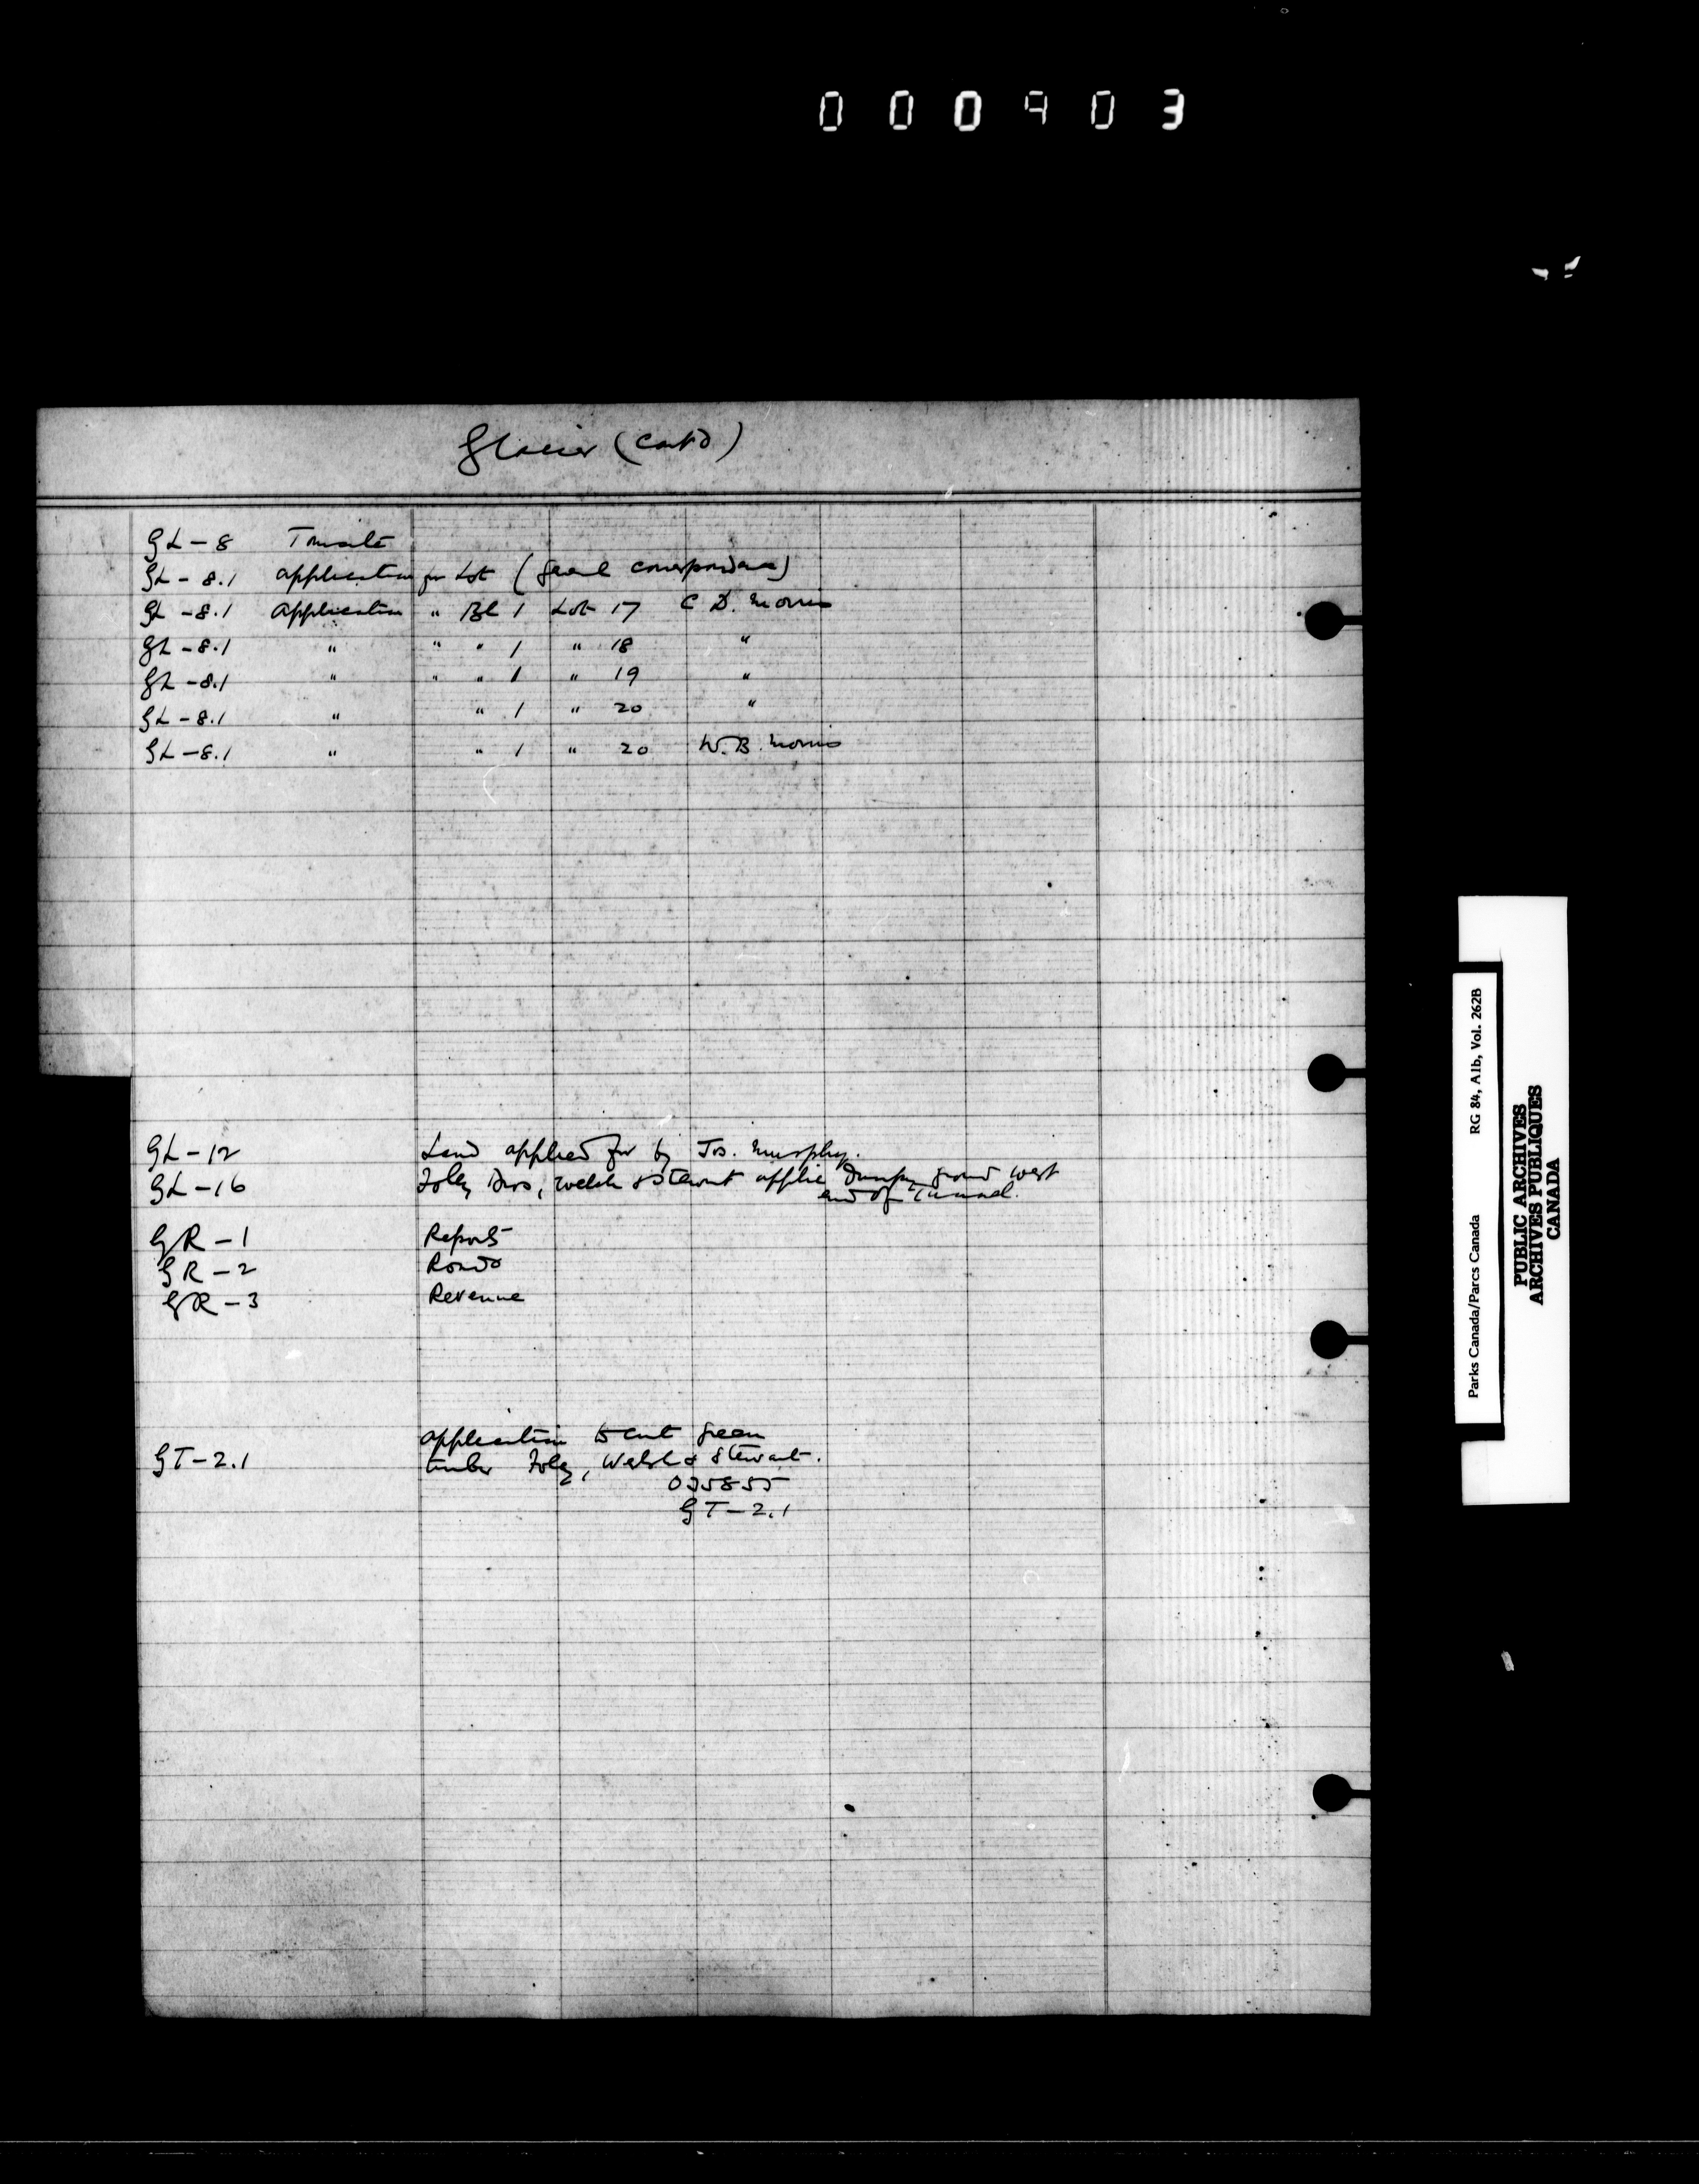 000903
Glacier (Cont'd)
GL-8 Townsite
GL-8.1 Application for Lot (General Correspondence)
GL-8.1 Application " Bl 1 Lot 17 C D. Morris
GL-8.1 " " " 1 " 18 "
GL-8.1 " " " 1 " 19 "
GL-8.1 " " 1 " 20 "
GL-8.1 " " 1 " 20 W.B. Morris
GL-12 Land applied for by Jos. Murphy.
GL-16 Foley Bros, Welsh & Stewart applic Dumping ground west
end of Tunnel.
GR-1 Reports
GR-2 Roads
GR-3 Revenue
application to cut green
GT-2.1 timber Foley, Welsh & Stewart.
035855
GT-2.1
Parks Canada/Parcs Canada RG 84, A1b, Vol. 262B
PUBLIC ARCHIVES
ARCHIVES PUBLIQUES
CANADA